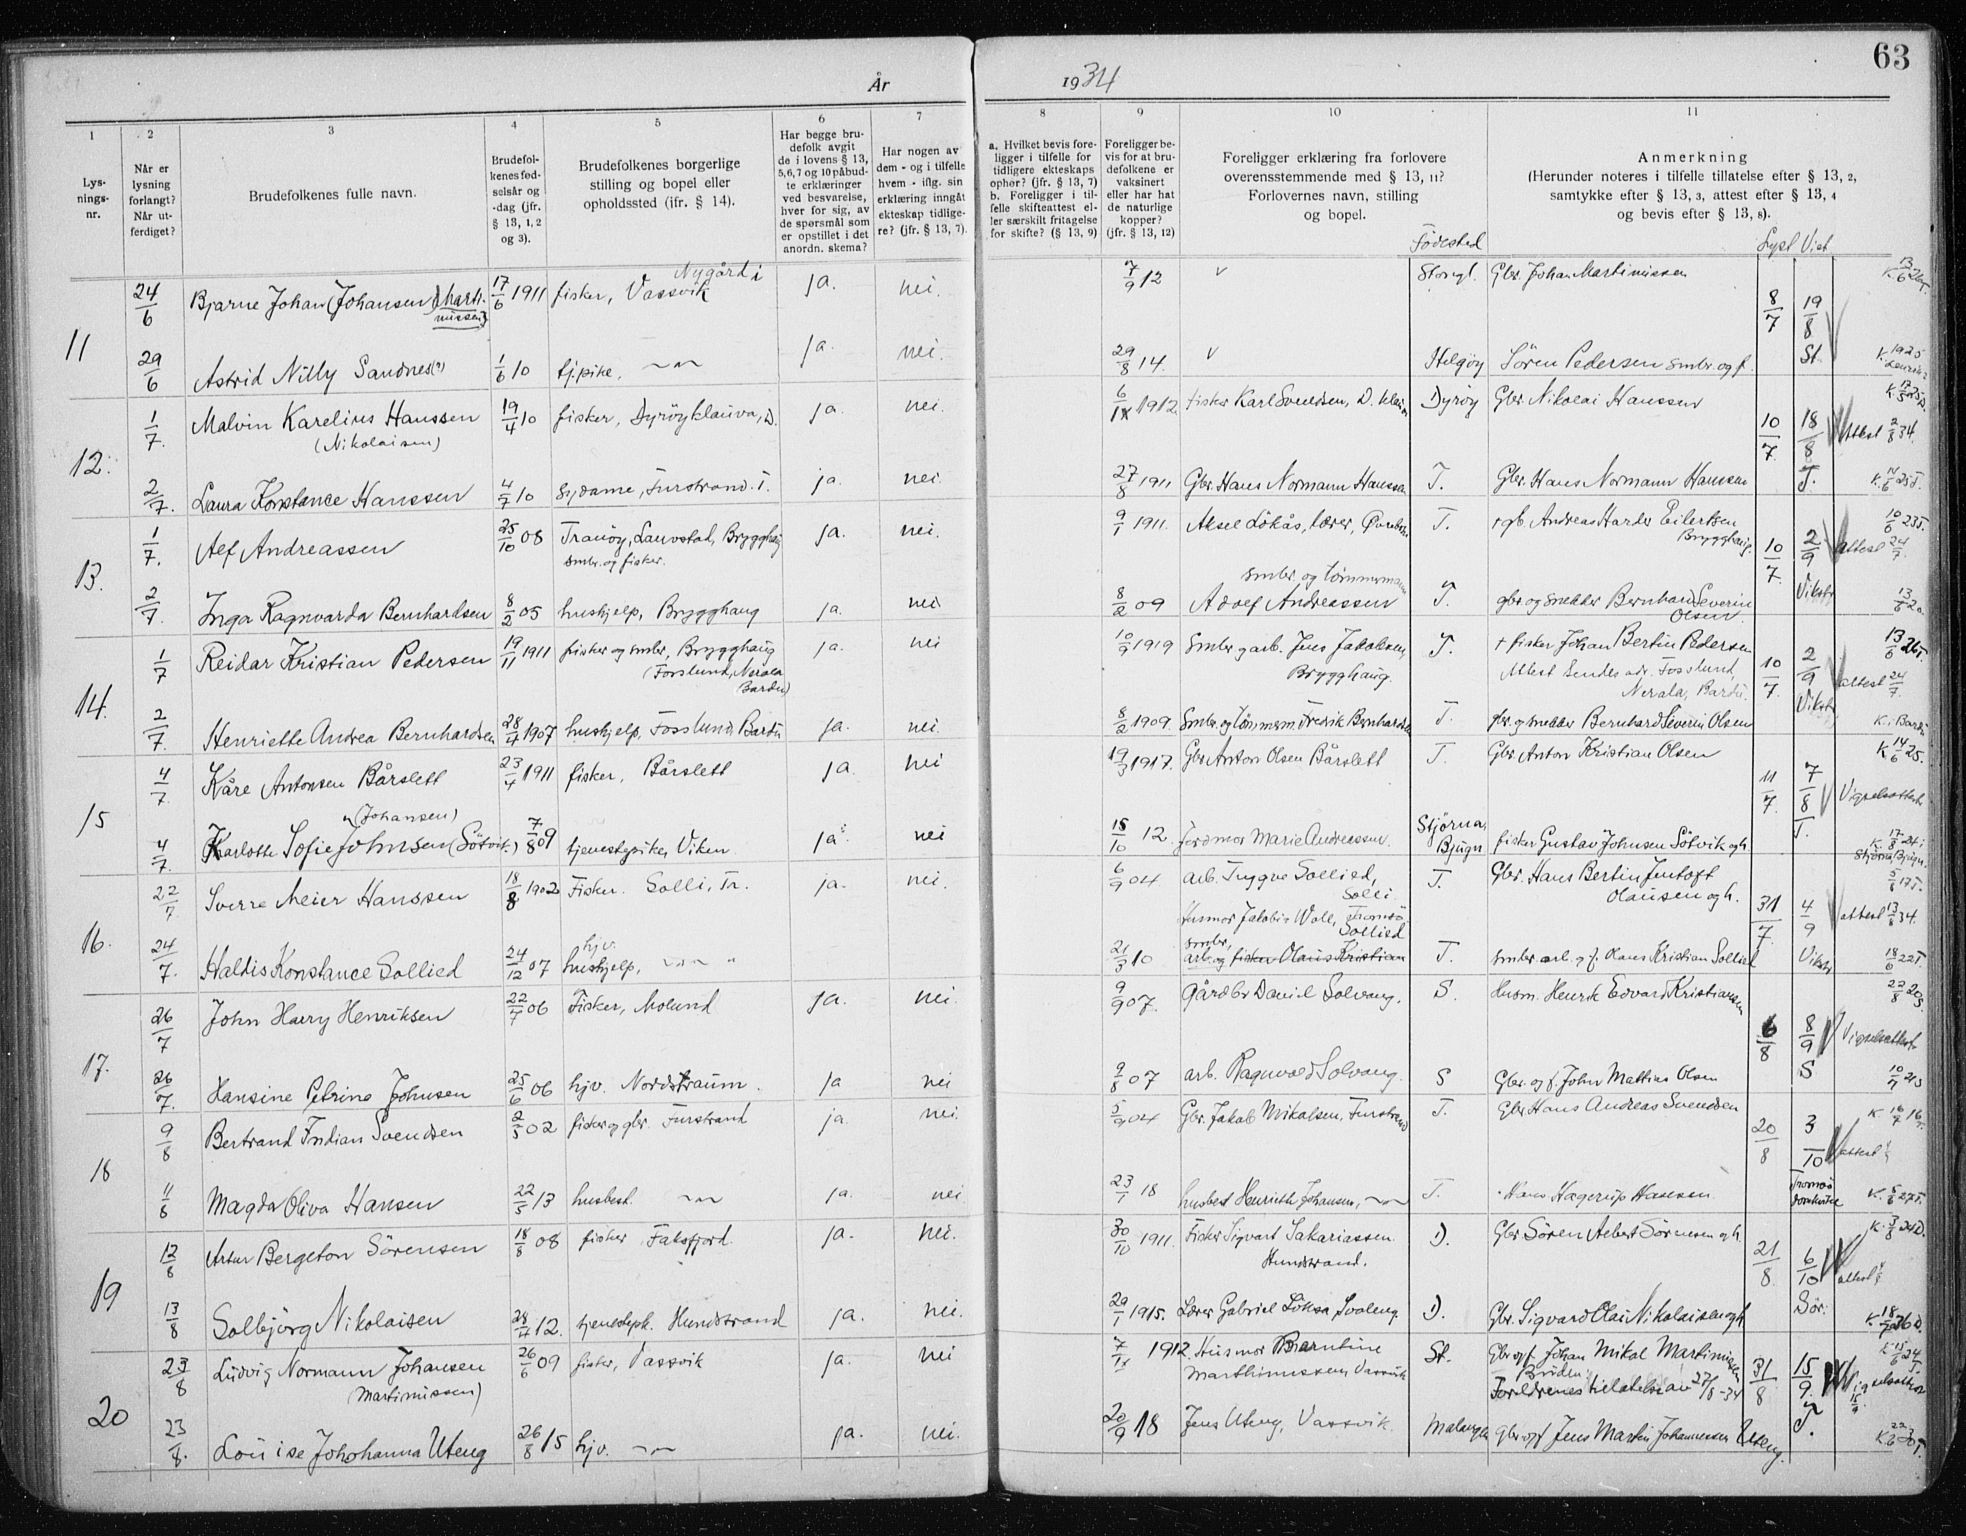 63
År 1934
1 2 3 4 5 6 7 8 9 10 11
Lysnings-nr.
Når er lysning forlangt? Når utferdiget?
Brudefolkenes fulle navn.
Brudefolkenes fødselsår og -dag (jfr. § 13, 1, 2 og 3).
Brudefolkenes borgerlige stilling og bopel eller opholdssted (jfr. § 14).
Har begge brudefolk avgit de i lovens § 13, 5, 6, 7 og 10 påbudte erklæringer ved besvarelse, hver for sig, av de spørsmål som er opstillet i det anordn. skema?
Har nogen av dem - og i tilfelle hvem - iflg. sin erklæring inngått ekteskap tidligere? (jfr. § 13, 7).
a. Hvilket bevis foreligger i tilfelle for tidligere ekteskaps ophør? (jfr. § 13, 7) b. Foreligger i tilfelle skifteattest eller særskilt fritagelse for skifte? (§ 13, 9)
Foreligger bevis for at brudefolkene er vaksinert eller har hat de naturlige kopper? (jfr. § 13, 12)
Foreligger erklæring fra forlovere overensstemmende med § 13, 11? Forlovernes navn, stilling og bopel.
Anmerkning (Herunder noteres i tilfelle tillatelse efter § 13, 2, samtykke efter § 13, 3, attest efter § 13, 4 og bevis efter § 13, 8).
Fødested Lyst Viet
11 24/6 Bjarne Johan (Johansen) Martinussen 17/6 1911 fisker, Nygård i Vassvik ja. nei. 7/9 12 v Stongl. Gbr. Johan Martinussen 8/7 19/8 K 13/6 26
29/6 Astrid Nilly Sandnes 1/6 10 tj.pike, ja. nei. 29/8 14. v Helgøy Sören Pedersen smbr. og f. St. K. 1925
12. 1/7. Malvin Karelius Hanssen (Nikolaisen) 19/4 10 fisker, Dyröyklauva, D. ja. nei. 1912 fisker Karl Svendsen, D. Dyröy Gbr. Nikolai Hanssen 10/7. 18/8 Attest 2/8 34.
2/7. Laura Konstance Hanssen 4/7 10 sydame, Furstrand. T. ja. nei. 27/8 1911 Gbr. Hans Normann Hanssen T. Gbr. Hans Normann Hanssen T. K. 14/6 25 T.
13. 1/7. Alf Andreassen 25/10 08 Tranöy, Lauvstad, Brygghaug smbr. og fisker. ja. nei. 9/1 1911. Aksel Lökås, lærer, T. + gb. Andreas Harder Eilertsen Brygghaug. 10/7. 2/9 attest 24/7. 10/6 23 T.
2/7. Inga Ragnvarda Bernhardsen 8/2 05 hushjelp, Brygghaug ja. nei 8/2 09 smbr. og tömmermann Adolf Andreassen T. gbr. og snekker Bernhard Severin Olsen. Vikstr. 13/6 20
14. 1/7 Reidar Kristian Pedersen 19/11 1911 fisker og smbr, Brygghaug (Fosslund, Nerala Bardu) ja. nei 10/9 1919 Smbr. og arb. Jens Jakobsen, Brygghaug. T. + fisker Johan Bertin Pedersen Attest sendes adr. Fosslund, Nerala, Bardu. 10/7. 2/9 attest 24/7. 13/6 26 T.
2/7. Henriette Andrea Bernhardsen 28/4 1907 hushjelp, Fosslund, Bardu ja. nei. 8/2 1909. Smbr. og tömmerm. Fredrik Bernhardsen T. gbr. og snekker Bernhard Severin Olsen Vikstr. K. i Bardu
15 4/7. Kåre Antonsen Bårslett 23/4 1911 fisker, Bårslett ja. nei 19/3 1917. Gbr. Anton Olsen Bårslett T. Gbr. Anton Kristian Olsen 11/7. 7/8 Vigselsattest K 14/6 25.
4/7. Karlotte Sofie Johnsen (Johansen) (Sötvik.) 7/8 09 tjenestepike, Viken ja nei 18/10 12. Jordmor Marie Andreassen. Stjörna, Bjugn fisker Gustav Johnsen Sötvik og h. T. K. 17/8 24 i Stjörna, Bjugn.
16. 22/7 Sverre Meier Hanssen 18/8 1902 Fisker. Solli, Tr. ja. nei. 6/9 04 arb. Tryggve Sollied, Solli. T. Gbr. Hans Bertin Jentoft Olaussen og h. 31/7 4/9 attest 13/8 34. 17 T.
24/7. Haldis Konstance Sollied 24/12 07 hjv. hushjelp, 21/3 10 Husmor Jakobie Woll, Tromsö smbr, arb. og fisker Olaus Kristian Sollied T. smbr. arb. og f. Olaus Kristian Sollied Vikstr 18/6 22 T.
17. 26/7 John Harry Henriksen 22/7 06 Fisker, Molund ja. nei. 9/9 07. Gårdbr Daniel Solvang. S. Husm. Henrik Edvard Kristiansen 6/8 8/9 Vigselsattest 22/8 20 S
26/7. Hansine Petrine Johnsen 25/6 06 hjv. Nordstraum. ja nei 9/8 07 arb. Ragnvald Solvang. S Gbr. og f. John Mattias Olsen S 10/7 21 S
18 9/8 Bertrand Indian Svendsen 2/5 02 fisker og gbr. Furstrand ja. nei 5/9 04 Gbr. Jakob Mikalsen, Furstrand T. Gbr Hans Andreas Svendsen 20/8 3/10 attest K 16/7 16
11/8 Magda Oliva Hansen 22/5 13 husbest. ja. nei 23/1 18 husbest Henriette Johansen, T. Hans Hagerup Hansen. Tromsö domkirke K. 5/6 27 T.
19 12/8 Artur Bergeton Sörensen 18/8 08 fisker Faksfjord. ja. nei. 30/10 1911. Fisker Sigvart Sakariassen Hundstrand. D. Gbr Sören Albert Sörensen og h. 21/8. 6/10 attest K. 3/8 24 D.
13/8 Solbjörg Nikolaisen 28/4 12. tjenestepk. Hundstrand ja. nei. 29/1 1915. Lærer Gabriel Löksa, D. Gbr. Sigvard Olai Nikolaisen og h Sör. K. 18/7 26 D.
20 23/8 Ludvig Normann Johansen (Martinussen) 26/6 09 fisker, Vassvik ja. nei 7/11 1912. Husmor Berntine Marthinussen Vassvik St. Gbr og f. Johan Mikal Martinussen Bruden Foreldrenes tillatelse av 27/8 -34 31/8 15/9. Vigselsattest K 15/6 24
23/8. Louise Johohanna Uteng 26/8 15 hjv. ja. nei. 20/9 18 Jens Uteng, Vassvik. Malangen Gbr og f Jens Martin Johannessen Uteng. T. K 22/6 30 T.